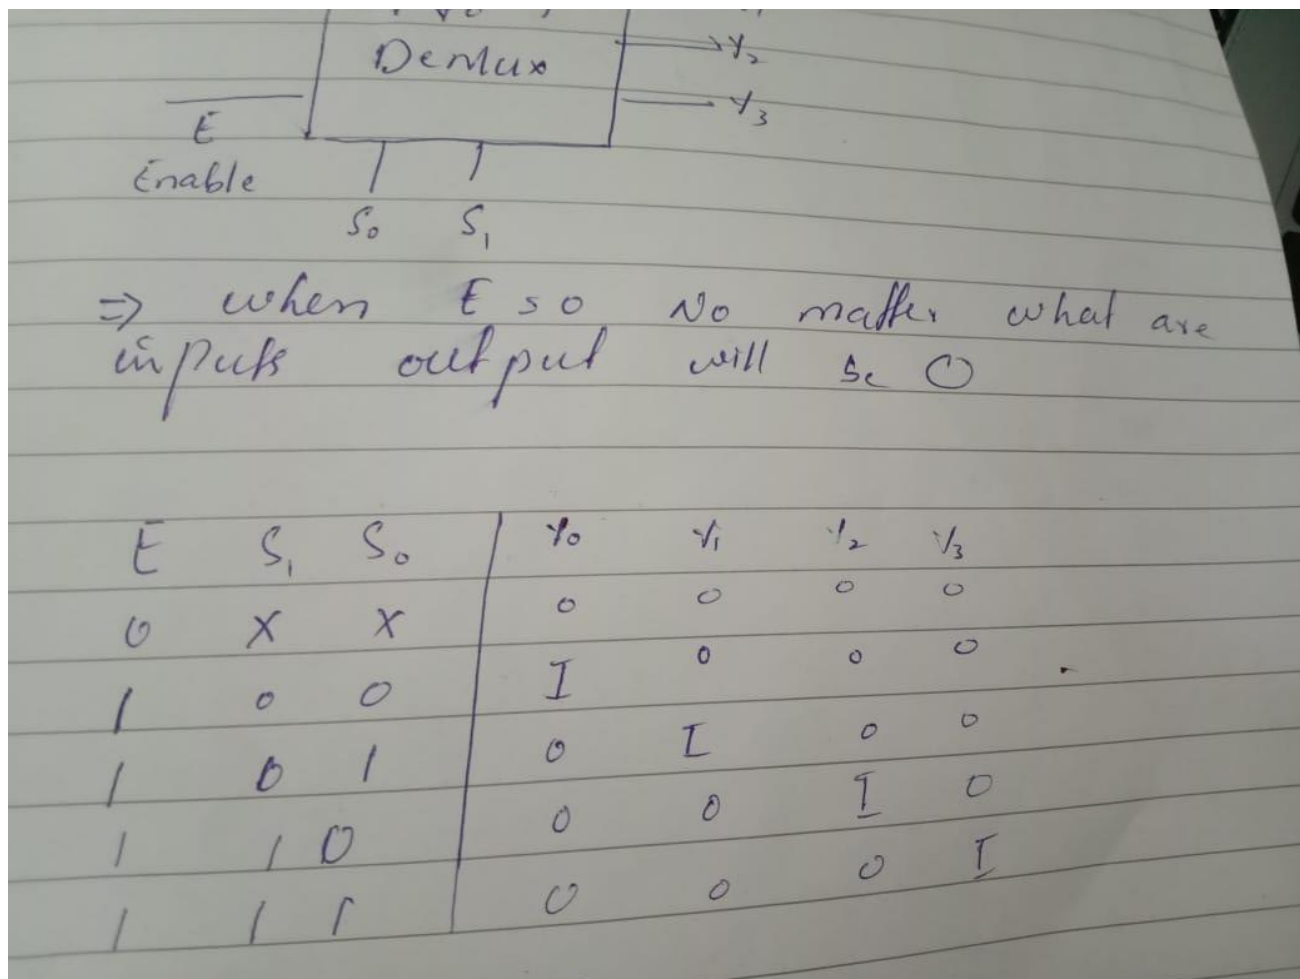 Demux
Y₂
Y₃
E
Enable
S₀ S₁
⇒ when E = 0 No matter what are
inputs output will be 0
E S₁ S₀ Y₀ Y₁ Y₂ Y₃
0 X X 0 0 0 0
1 0 0 I 0 0 0
1 0 1 0 I 0 0
1 1 0 0 0 I 0
1 1 1 0 0 0 I